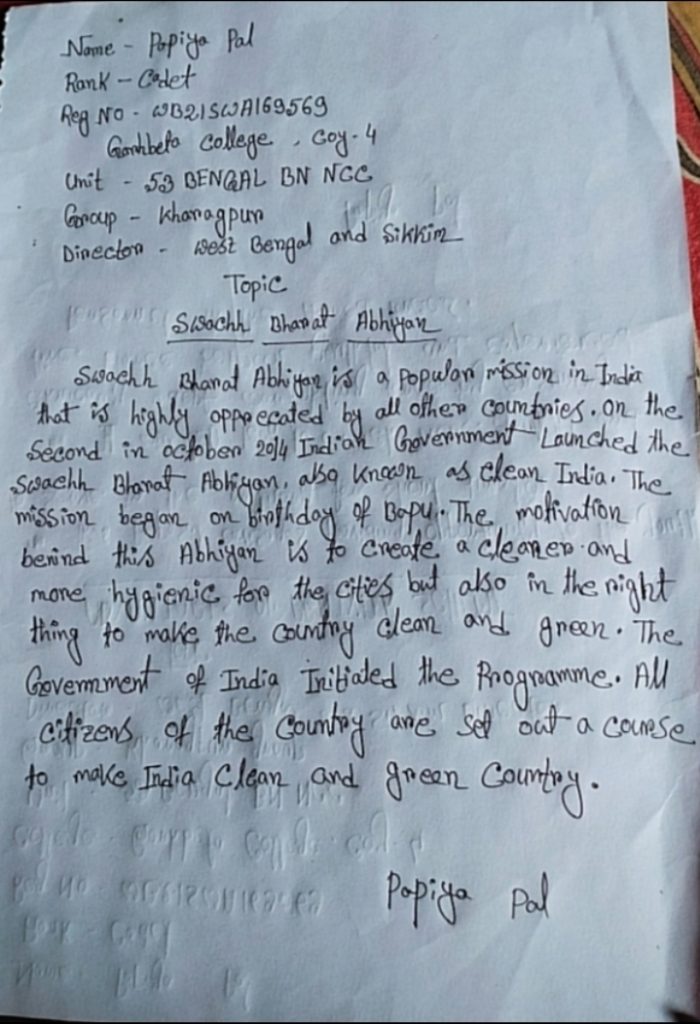 Name - Papiya Pal
Rank - Cadet
Reg No - WB21SWA169569
Garhbeta College, Coy-4
Unit - 53 BENGAL BN NCC
Group - Kharagpur
Director - West Bengal and Sikkim
Topic
Swachh Bharat Abhiyan
Swachh Bharat Abhiyan is a popular mission in India
that is highly apprecated by all other countries. on the
Second in october 2014 Indian Government Launched the
Swachh Bharat Abhiyan, also known as clean India. The
mission began on birthday of Bapu. The motivation
behind this Abhiyan is to create a cleaner and
more hygienic for the cities but also in the right
thing to make the country clean and green. The
Government of India Initiated the Programme. All
citizens of the Country are set out a course
to make India Clean and green Country.
Papiya Pal